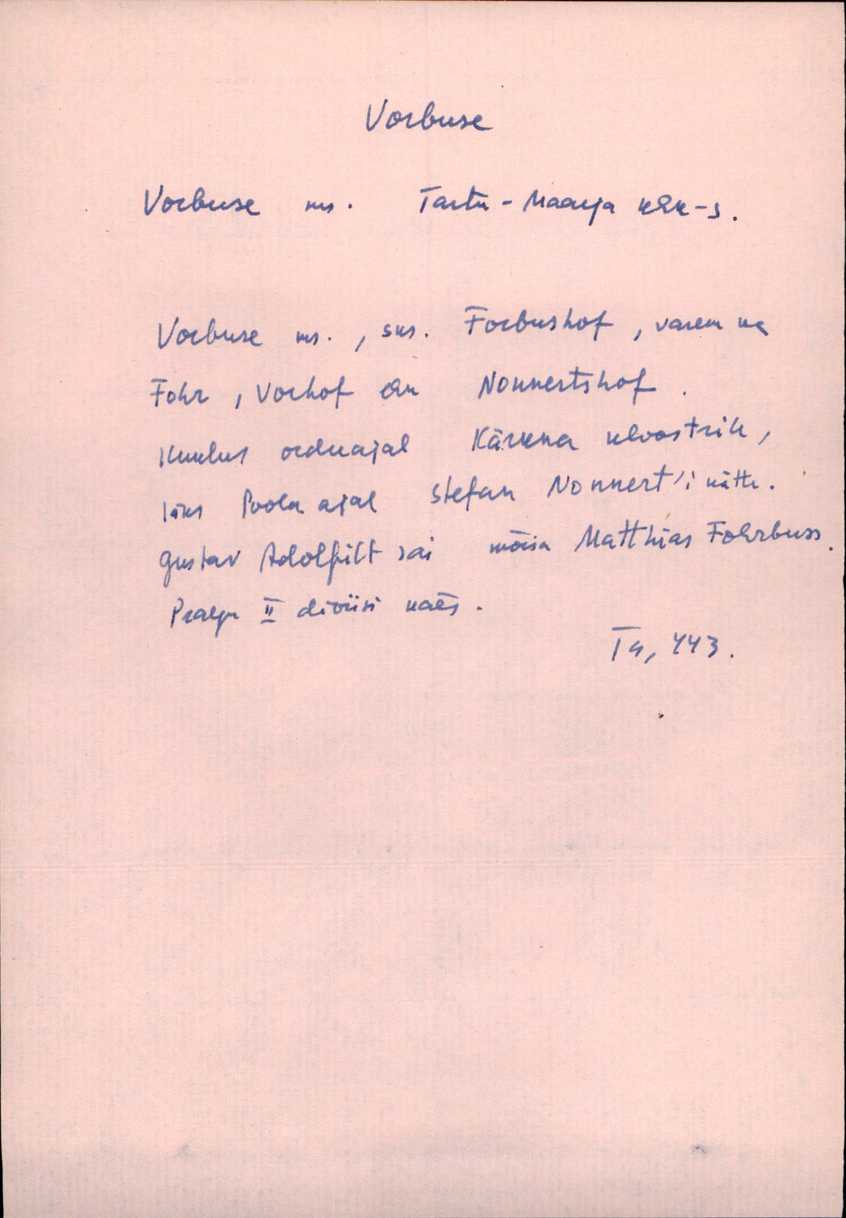 Vorbuse
Vorbuse ms. Tartu-Maarja khk-s.
Vorbuse ms., sks. Forbushof, varem ka
Fohr, Vorhof ehk Nonnertshof.
Kuulus orduajal Kärkna kloostrile,
läks Poola ajal Stefan Nonnert'i kätte.
Gustav Adolfilt sai mõisa Matthias Fohrbuss.
Praegu II diviisi käes.
Ta, 443.